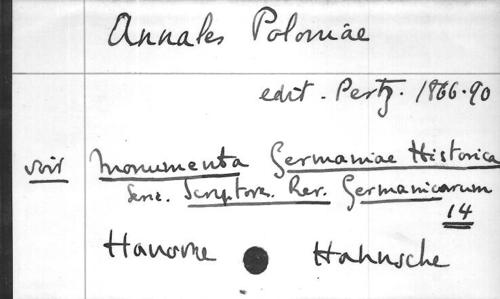 Annales Poloniae
edit. Pertz. 1866.90
voir Monumenta Germaniae Historica
Serie. Scriptores. Rer. Germanicarum
14
Hanovre Hahnsche